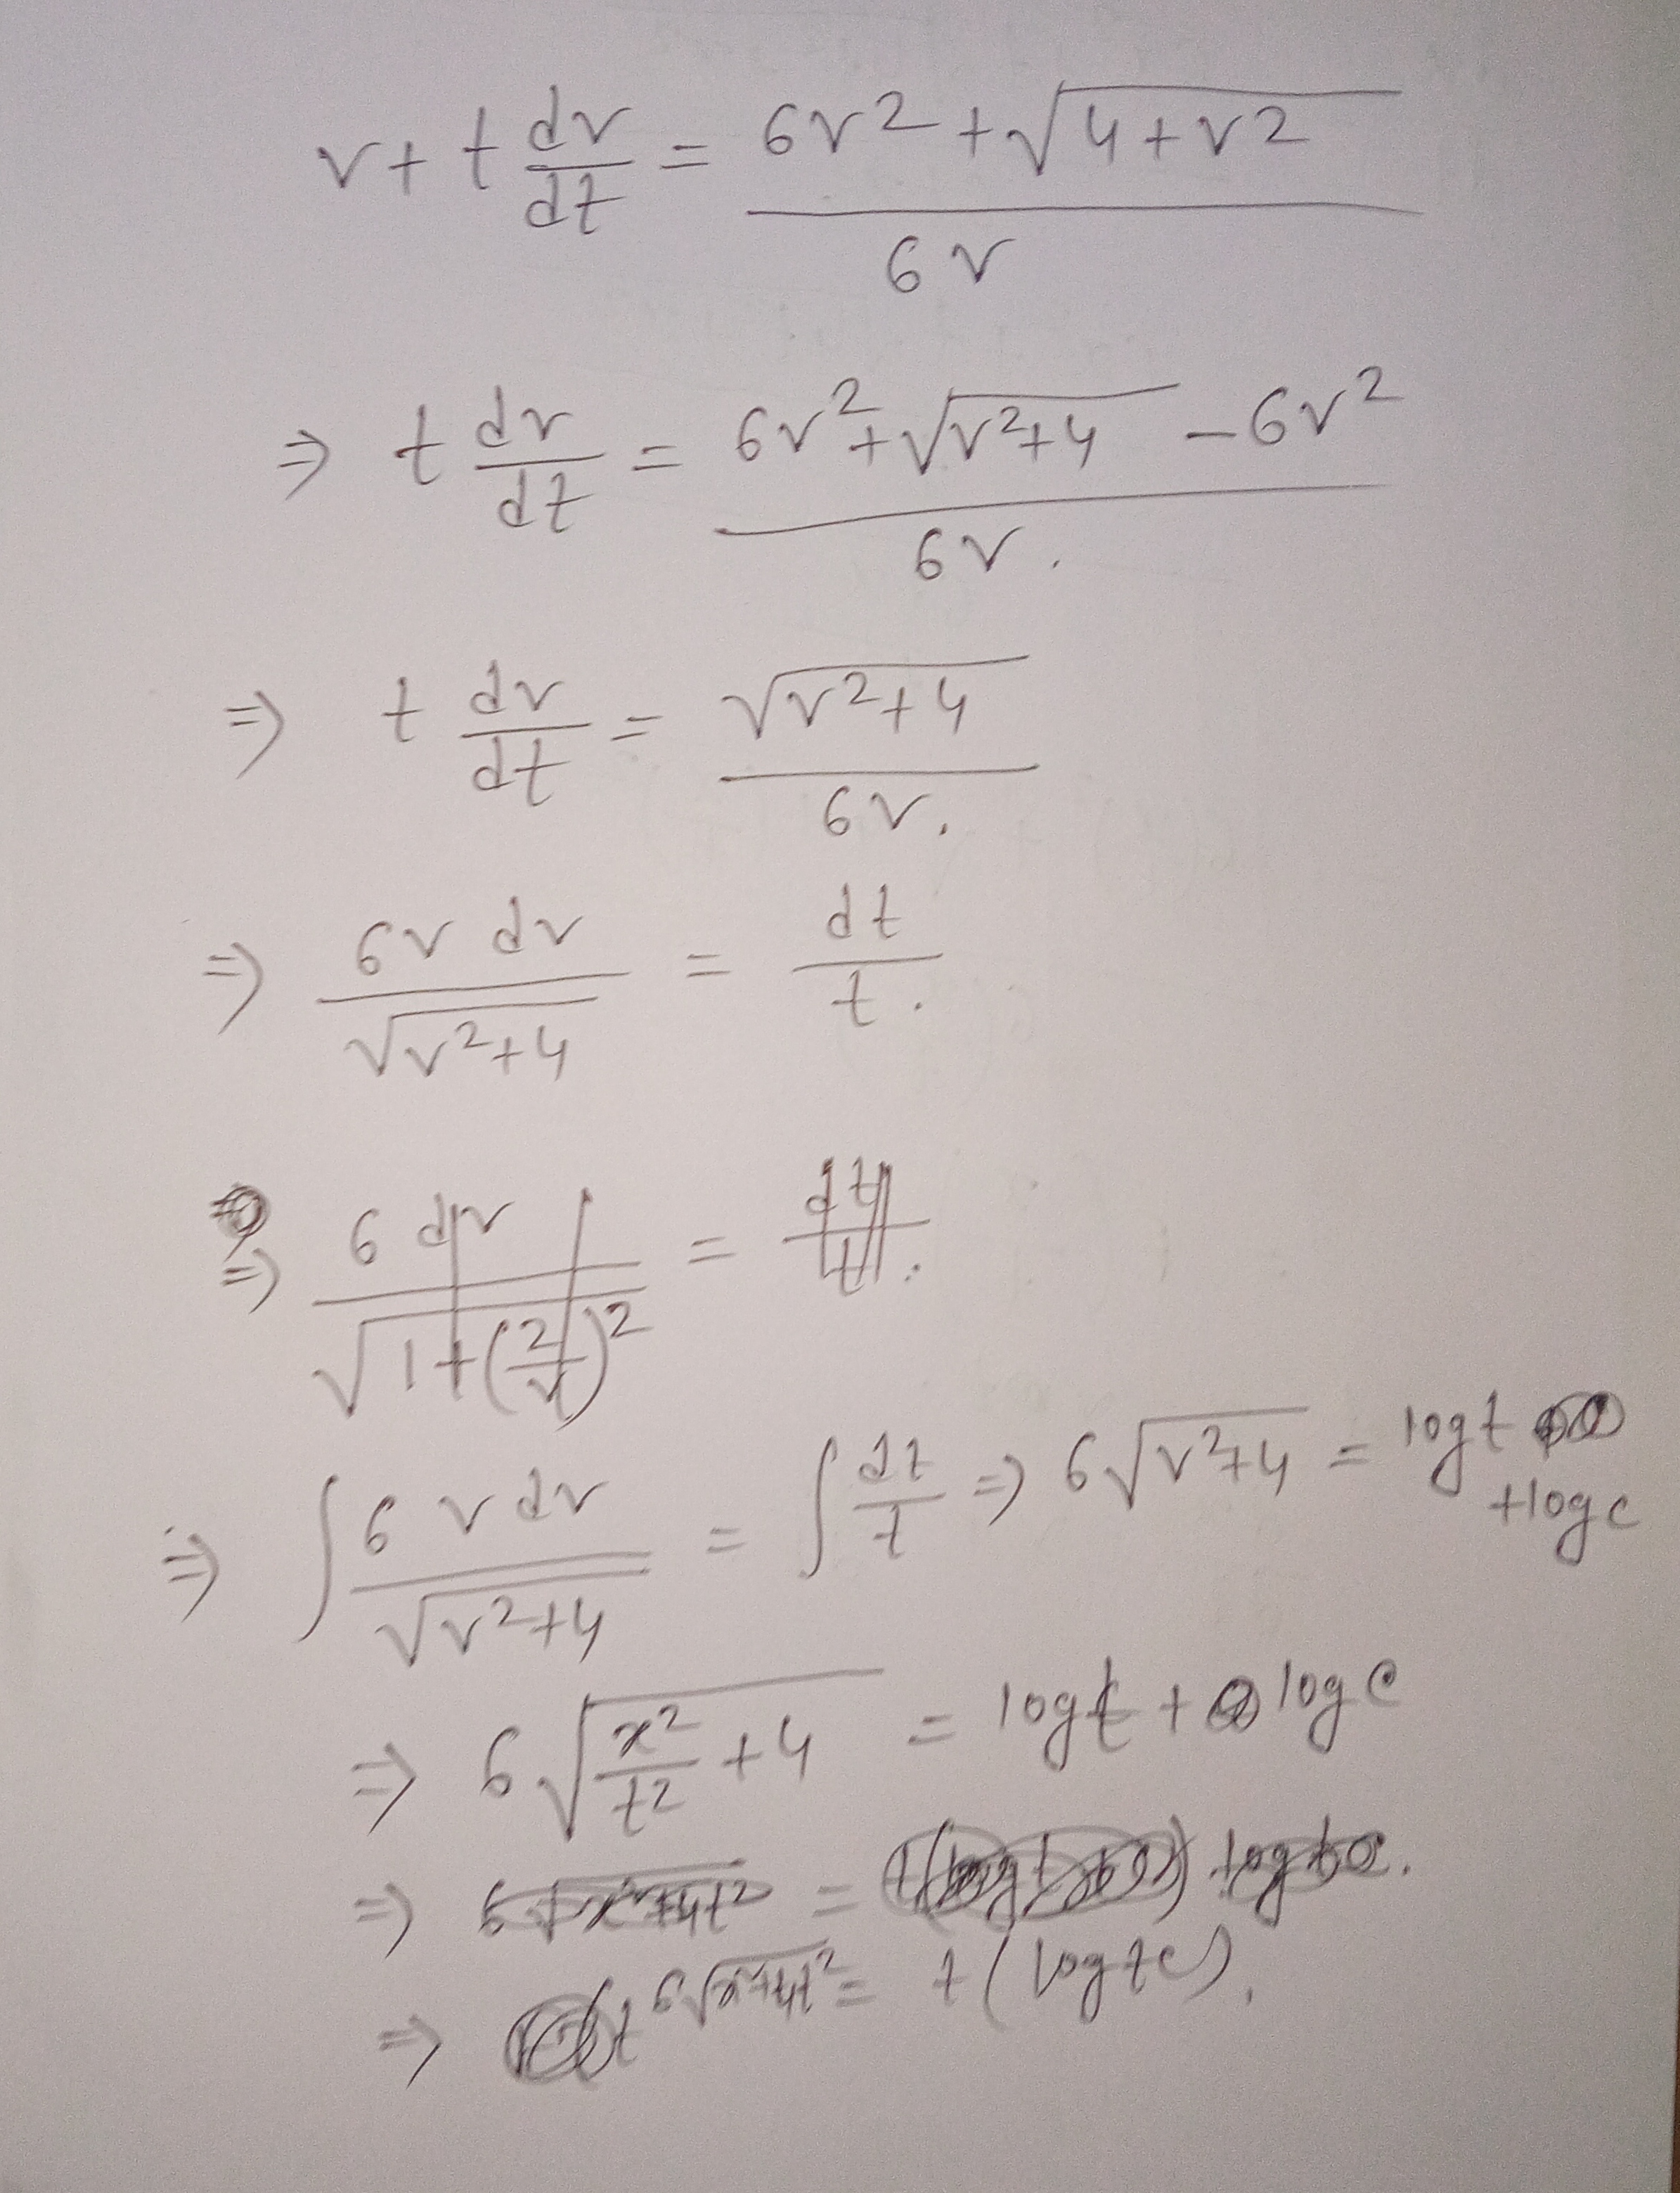 v + t dv/dt = (6v2 + √(4 + v2))/(6v)
⇒ t dv/dt = (6v² + √(v²+4) − 6v²)/(6v).
⇒ t dv/dt = √(v²+4)/(6v).
⇒ 6v dv/√(v²+4) = dt/t.
⇒ 6 dv/√(1+(2/v)²) = dt/t.
⇒ ∫ 6 v dv/√(v²+4) = ∫ dt/t ⇒ 6√(v²+4) = log t + log c
⇒ 6√(x²/t² + 4) = log t + log c
⇒ 6√(x²+4t²) =
⇒ 6√(x²+4t²) = t(log tc).